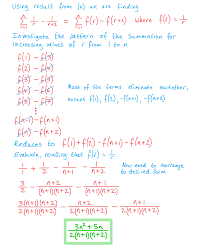 Using result from (a) we are finding
n Σ r=1 1/r - 1/(r+2) = n Σ r=1 f(r) - f(r+2) where f(r) = 1/r
Investigate the pattern of the summation for
increasing values of r from 1 to n
f(1) - f(3)
f(2) - f(4)
f(3) - f(5)
Most of the terms eliminate each other,
except f(1), f(2), -f(n+1), -f(n+2)
f(n-1) - f(n+1)
f(n) - f(n+2)
Reduces to f(1) + f(2) - f(n+1) - f(n+2)
Evaluate, recalling that f(r) = 1/r
1/1 + 1/2 - 1/(n+1) - 1/(n+2)
Now need to rearrange
to desired form
3/2 - (n+2)/((n+1)(n+2)) - (n+1)/((n+1)(n+2))
3(n+1)(n+2)/(2(n+1)(n+2)) - 2(n+2)/(2(n+1)(n+2)) - 2(n+1)/(2(n+1)(n+2))
(3n² + 5n)/(2(n+1)(n+2))